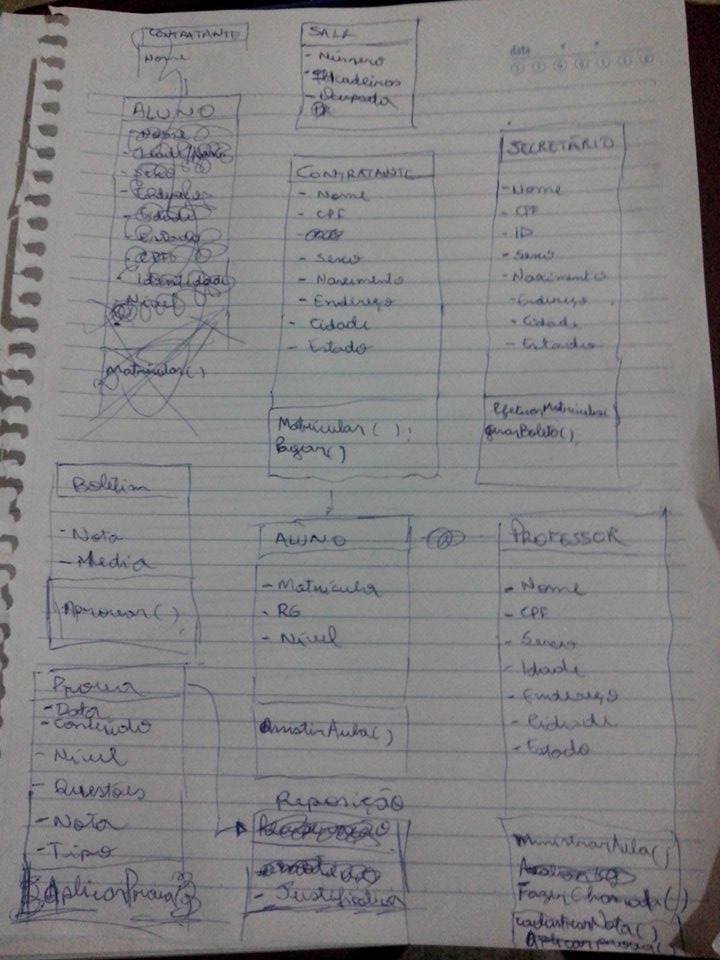 CONTRATANTE
Nome
SALA
- Número
- Cadeiras
- Ocupada
data
ALUNO
- Nome
- Sexo
- Endereço
- Cidade
- Estado
- CPF
- Identidade
Nível
Matricular()
CONTRATANTE
- Nome
- CPF
- Sexo
- Nascimento
- Endereço
- Cidade
- Estado
Matricular ( );
Pagar()
SECRETÁRIO
- Nome
- CPF
- ID
- Sexo
- Nascimento
- Endereço
- Cidade
- Estado
EfetuarMatricula()
gerarBoleto()
Boletim
- Nota
- Media
Aprovar( )
ALUNO
- Matricula
- RG
- Nivel
AssistirAula()
PROFESSOR
- Nome
- CPF
- Sexo
- Idade
- Endereço
- Cidade
- Estado
MinistrarAula()
FazerChamada()
CadastrarNota()
Aplicarprova()
Prova
- Data
- Conteúdo
- Nivel
- Questões
- Nota
- Tipo
AplicarProva()
Reposição
- Justificativa